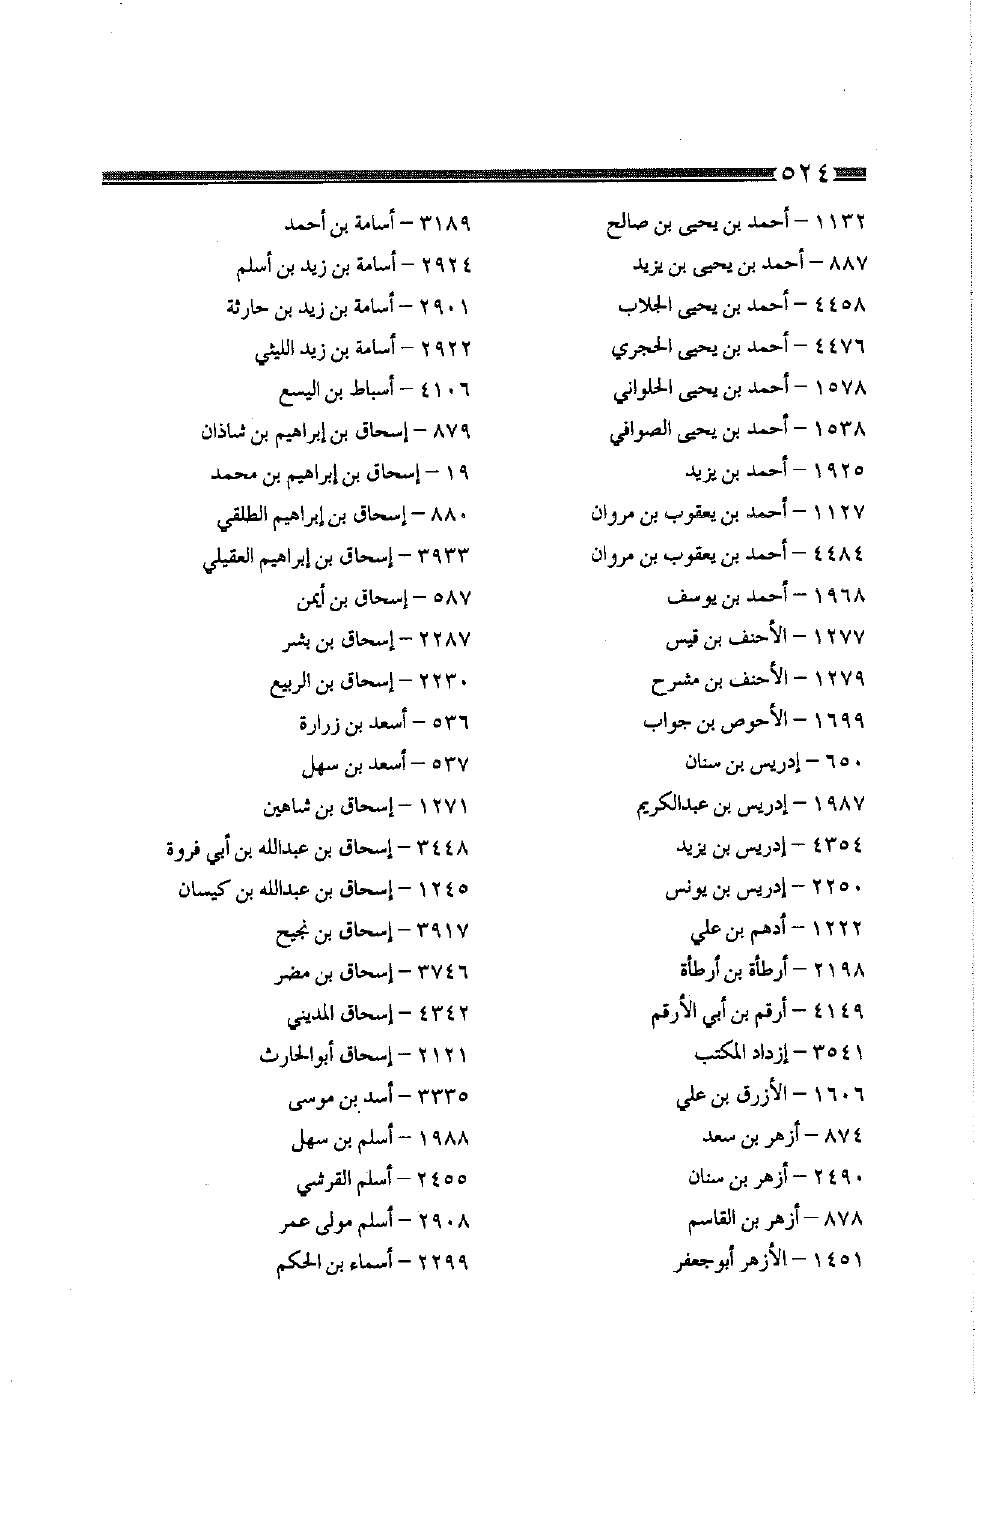 ٥٢٤
١١٣٢ – أحمد بن يحيى بن صالح
٨٨٧ – أحمد بن يحيى بن يزيد
٤٤٥٨ – أحمد بن يحيى الجلاب
٤٤٧٦ – أحمد بن يحيى الحجري
١٥٧٨ – أحمد بن يحيى الحلواني
١٥٣٨ – أحمد بن يحيى الصوافي
١٩٢٥ – أحمد بن يزيد
١١٢٧ – أحمد بن يعقوب بن مروان
٤٤٨٤ – أحمد بن يعقوب بن مروان
١٩٦٨ – أحمد بن يوسف
١٢٧٧ – الأحنف بن قيس
١٢٧٩ – الأحنف بن مشرح
١٦٩٩ – الأحوص بن جواب
٦٥٠ – إدريس بن سنان
١٩٨٧ – إدريس بن عبدالكريم
٤٣٥٤ – إدريس بن يزيد
٢٢٥٠ – إدريس بن يونس
١٢٢٢ – أدهم بن علي
٢١٩٨ – أرطأة بن أرطأة
٤١٤٩ – أرقم بن أبي الأرقم
٣٥٤١ – إزداد المكتب
١٦٠٦ – الأزرق بن علي
٨٧٤ – أزهر بن سعد
٢٤٩٠ – أزهر بن سنان
٨٧٨ – أزهر بن القاسم
١٤٥١ – الأزهر أبوجعفر
٣١٨٩ – أسامة بن أحمد
٢٩٢٤ – أسامة بن زيد بن أسلم
٢٩٠١ – أسامة بن زيد بن حارثة
٢٩٢٢ – أسامة بن زيد الليثي
٤١٠٦ – أسباط بن اليسع
٨٧٩ – إسحاق بن إبراهيم بن شاذان
١٩ – إسحاق بن إبراهيم بن محمد
٨٨٠ – إسحاق بن إبراهيم الطلقي
٣٩٣٣ – إسحاق بن إبراهيم العقيلي
٥٨٧ – إسحاق بن أيمن
٢٢٨٧ – إسحاق بن بشر
٢٢٣٠ – إسحاق بن الربيع
٥٣٦ – أسعد بن زرارة
٥٣٧ – أسعد بن سهل
١٢٧١ – إسحاق بن شاهين
٣٤٤٨ – إسحاق بن عبدالله بن أبي فروة
١٢٤٥ – إسحاق بن عبدالله بن كيسان
٣٩١٧ – إسحاق بن نجيح
٣٧٤٦ – إسحاق بن مضر
٤٣٤٢ – إسحاق المديني
٢١٢١ – إسحاق أبوالحارث
٣٣٣٥ – أسد بن موسى
١٩٨٨ – أسلم بن سهل
٢٤٥٥ – أسلم القرشي
٢٩٠٨ – أسلم مولى عمر
٢٢٩٩ – أسماء بن الحكم